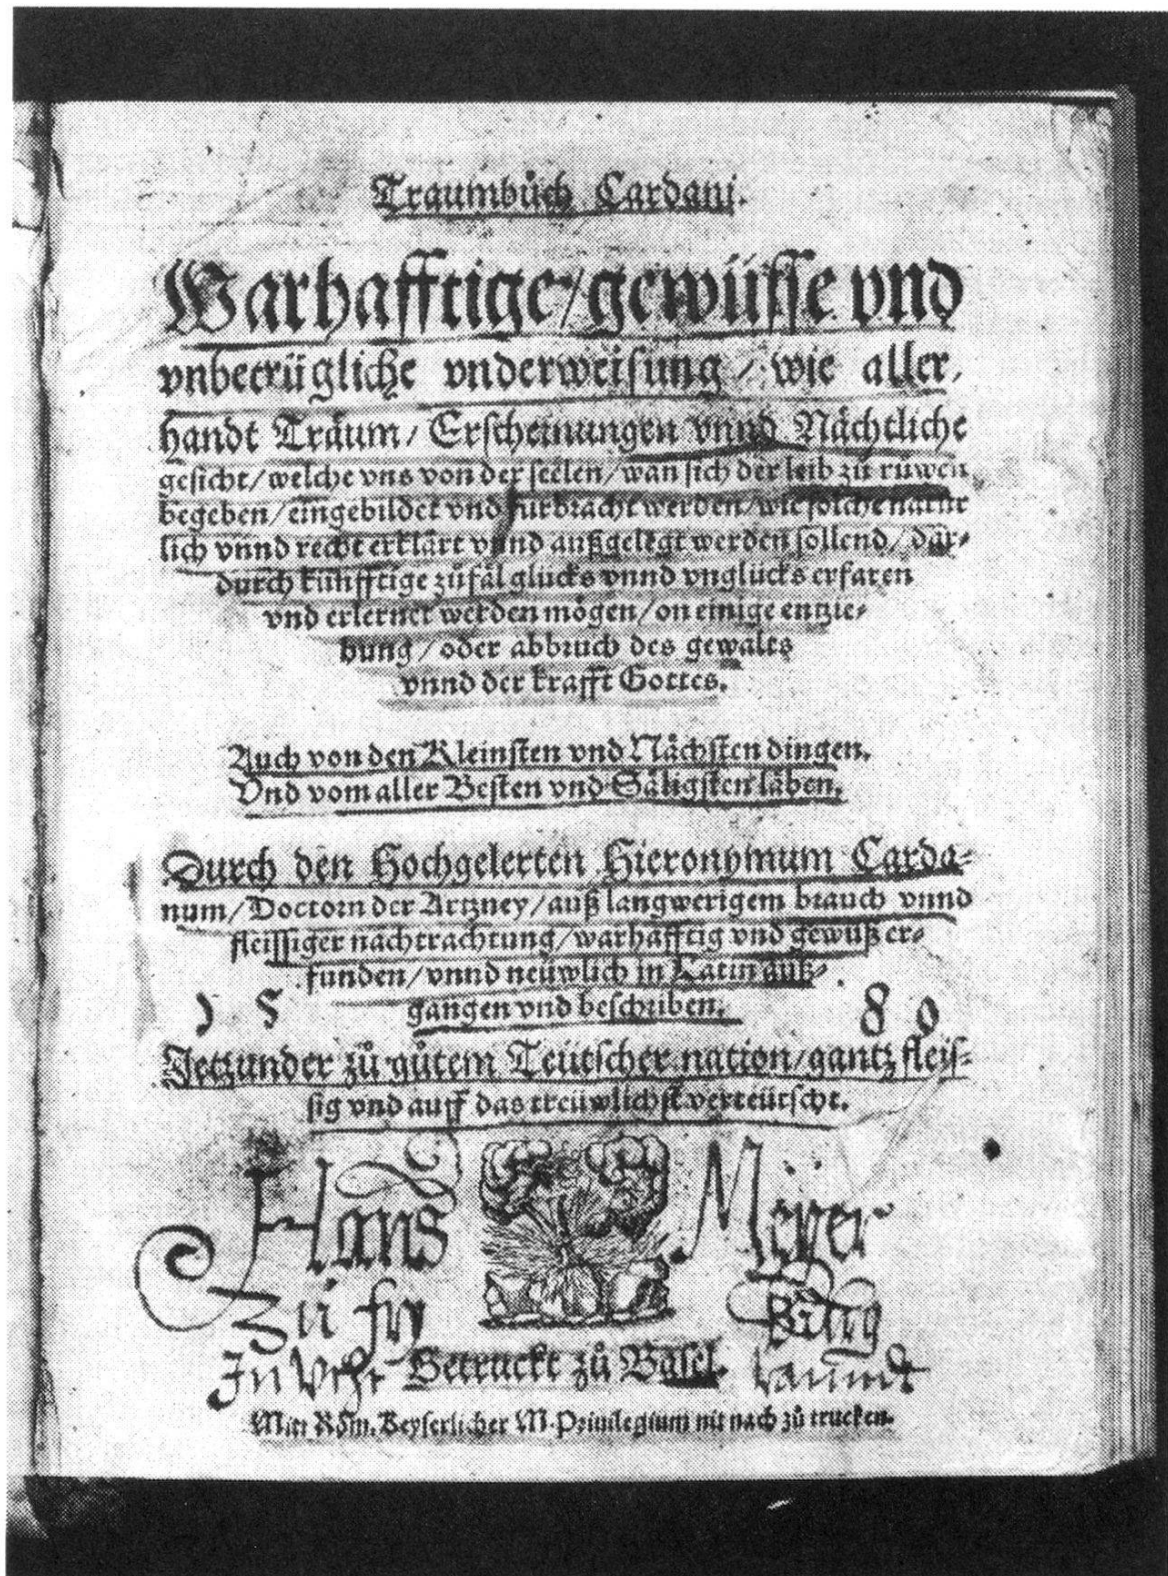 Traumbůch Cardani.
Warhafftige/gewüsse vnd
vnbetrügliche vnderweisung/wie aller,
handt Träum/Erscheinungen vnnd Nächtliche
gesicht/welche vns von der seelen/wan sich der leib zů rüwen
begeben/eingebildet vnd fürbracht werden/wie solche natür
lich vnnd recht erklärt vnnd außgelegt werden sollend/dar-
durch künfftige zůfäl glücks vnnd vnglücks erfaren
vnd erlernet werden mögen/on einige entzie-
hung/oder abbruch des gewalts
vnnd der krafft Gottes.
Auch von den Kleinsten vnd Nächsten dingen.
Vnd vom aller Besten vnd Säligsten läben.
Durch den Hochgelerten Hieronymum Carda-
num/Doctorn der Artzney/auß langwerigem brauch vnnd
fleissiger nachtrachtung/warhafftig vnd gewüß er-
funden/vnnd neüwlich in Latin auß-
gangen vnd beschriben.
15 80
Jetzunder zů gůtem Teütscher nation/gantz fleis-
sig vnd auff das treüwlichst verteütscht.
Hans Meyer
Zu fry burg
In Vcht
Getruckt zů Basel.
Mitt Röm. Keyserlicher M. Priuilegium nit nach zů trucken.